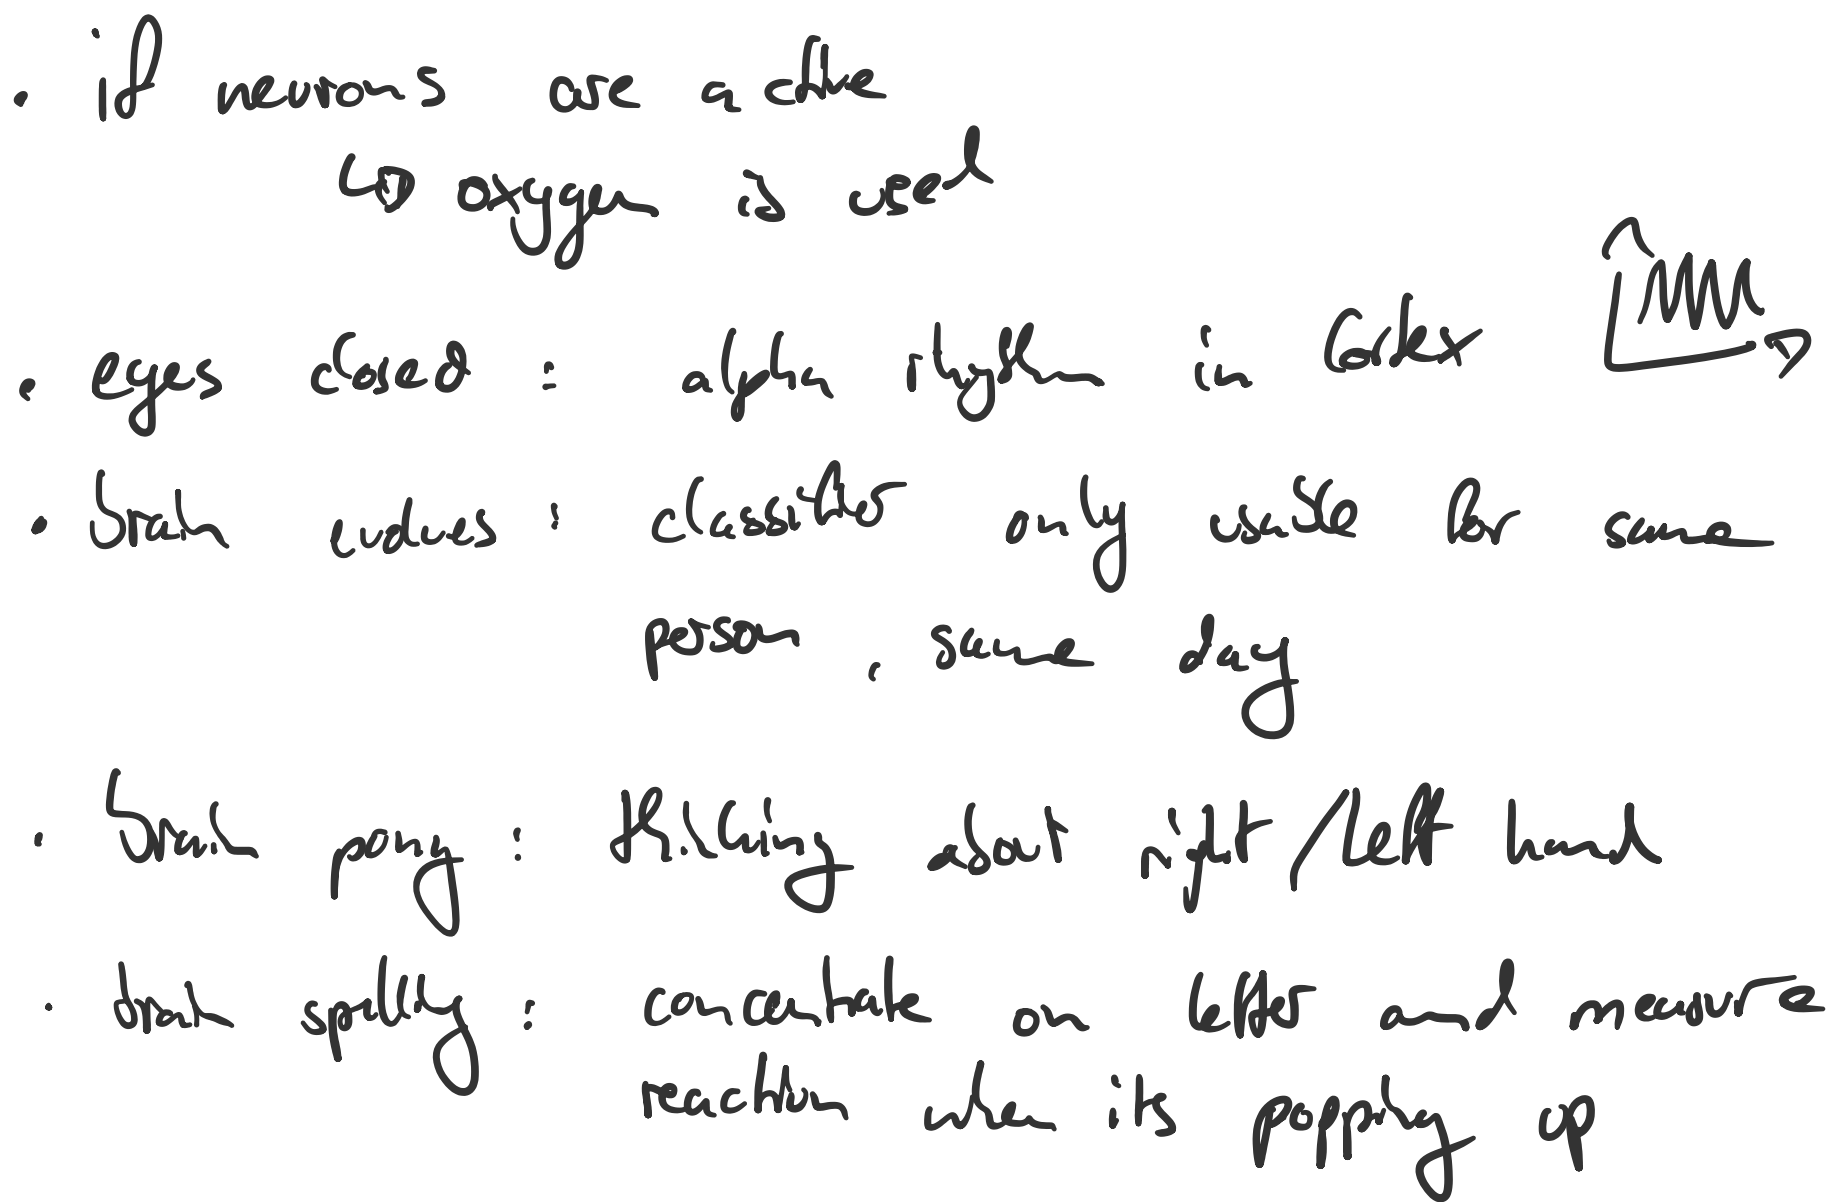 • if neurons are active
↳ oxygen is used
• eyes closed : alpha rhythm in Cortex
• brain evolves : classifier only usable for same
person, same day
• brain pong : thinking about right / left hand
• brain spelling : concentrate on letter and measure
reaction when its popping up